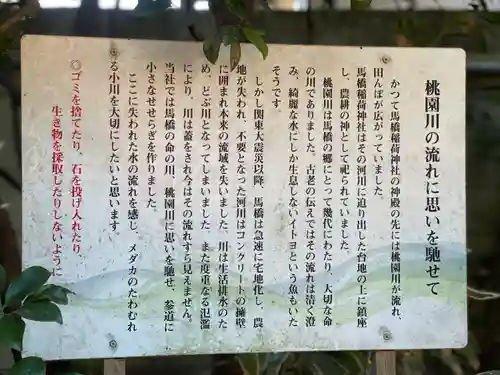 桃園川の流れに思いを馳せて
かつて馬橋稲荷神社の神殿の先には桃園川が流れ、
田んぼが広がっていました。
馬橋稲荷神社はその河川に迫り出した台地の上に鎮座
し、農耕の神として祀られていました。
桃園川は馬橋の郷にとって幾代にわたり、大切な命
の川でありました。古老の伝えではその流れは清く澄
み、綺麗な水にしか生息しないイトヨという魚もいた
そうです。
しかし関東大震災以降、馬橋は急速に宅地化し、農
地が失われ、不要となった河川はコンクリートの擁壁
に囲まれ本来の流域を失いました。川は生活排水のた
め、どぶ川となってしまいました。また度重なる氾濫
により、川は蓋をされ今はその流れすら見えません。
当社では馬橋の命の川、桃園川に思いを馳せ、参道に
小さなせせらぎを作りました。
ここに失われた水の流れを感じ、メダカのたわむれ
る小川を大切にしたいと思います。
◎ゴミを捨てたり、石を投げ入れたり、
生き物を採取したりしないように